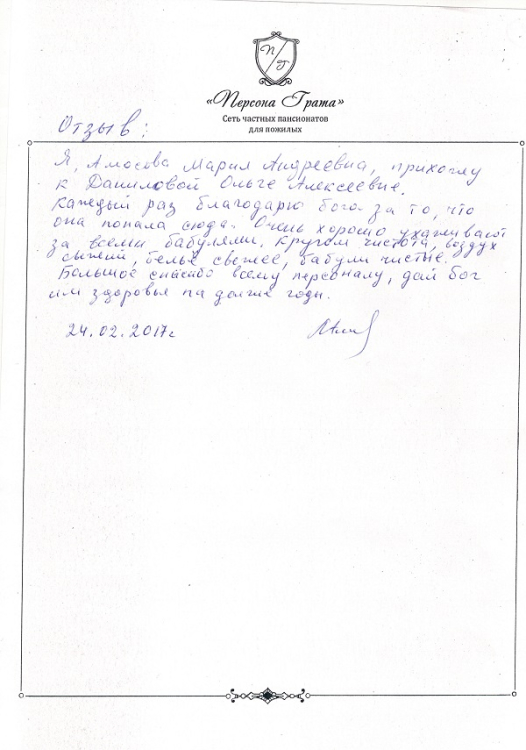 П/Г
«Персона Грата»
Сеть частных пансионатов
для пожилых
Отзыв:
Я, Амосова Мария Андреевна, прихожу
к Даниловой Ольге Алексеевне.
Каждый раз благодарю бога за то, что
она попала сюда. Очень хорошо ухаживают
за всеми бабулями. Кругом чистота, воздух
свежий, бельё свежее, бабули чистые.
Большое спасибо всему персоналу, дай бог
им здоровья на долгие годы.
24.02.2017г